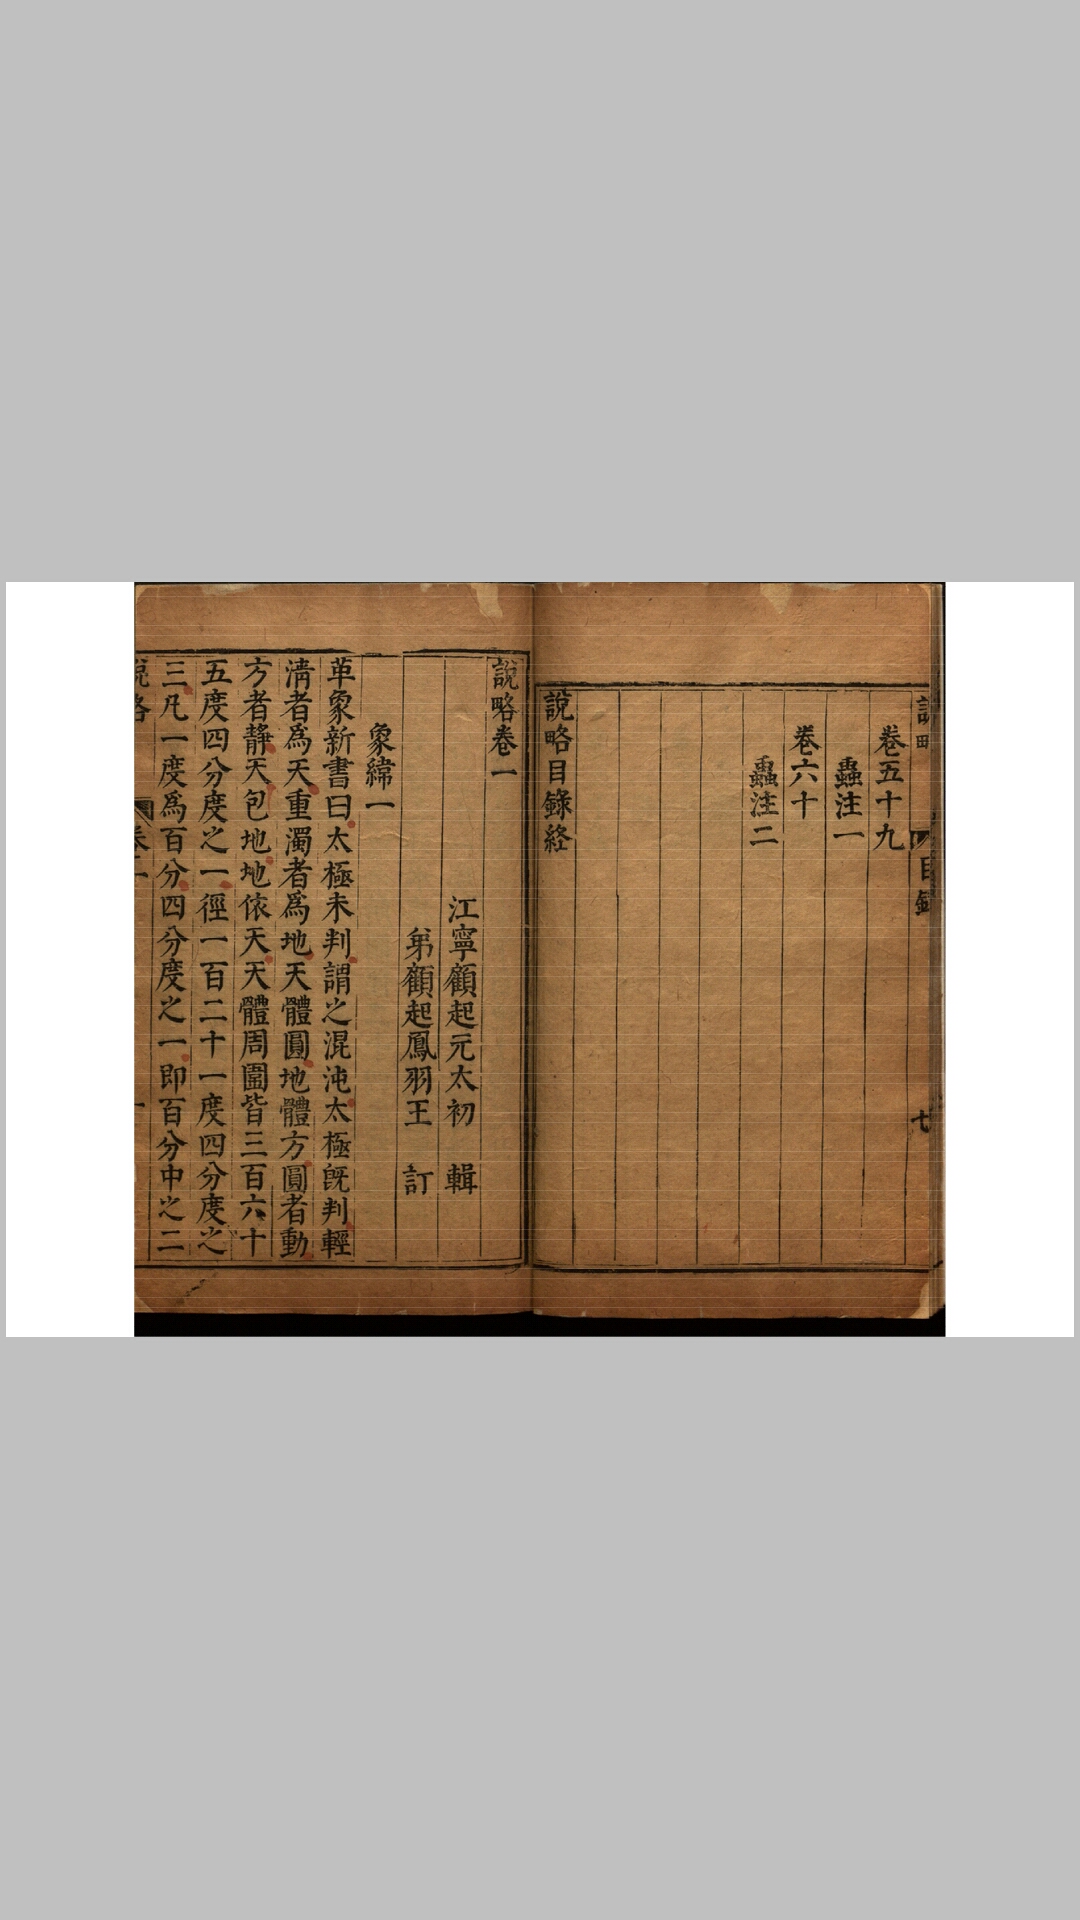 卷五十九
蟲注一
卷六十
蟲注二
說略目錄終
說略卷一
江寧顧起元太初 輯
弟顧起鳳羽王 訂
象緯一
革象新書曰太極未判謂之混沌太極旣判輕
清者爲天重濁者爲地天體圓地體方圓者動
方者靜天包地地依天天體周圍皆三百六十
五度四分度之一徑一百二十一度四分度之
三凡一度爲百分四分度之一即百分中之二